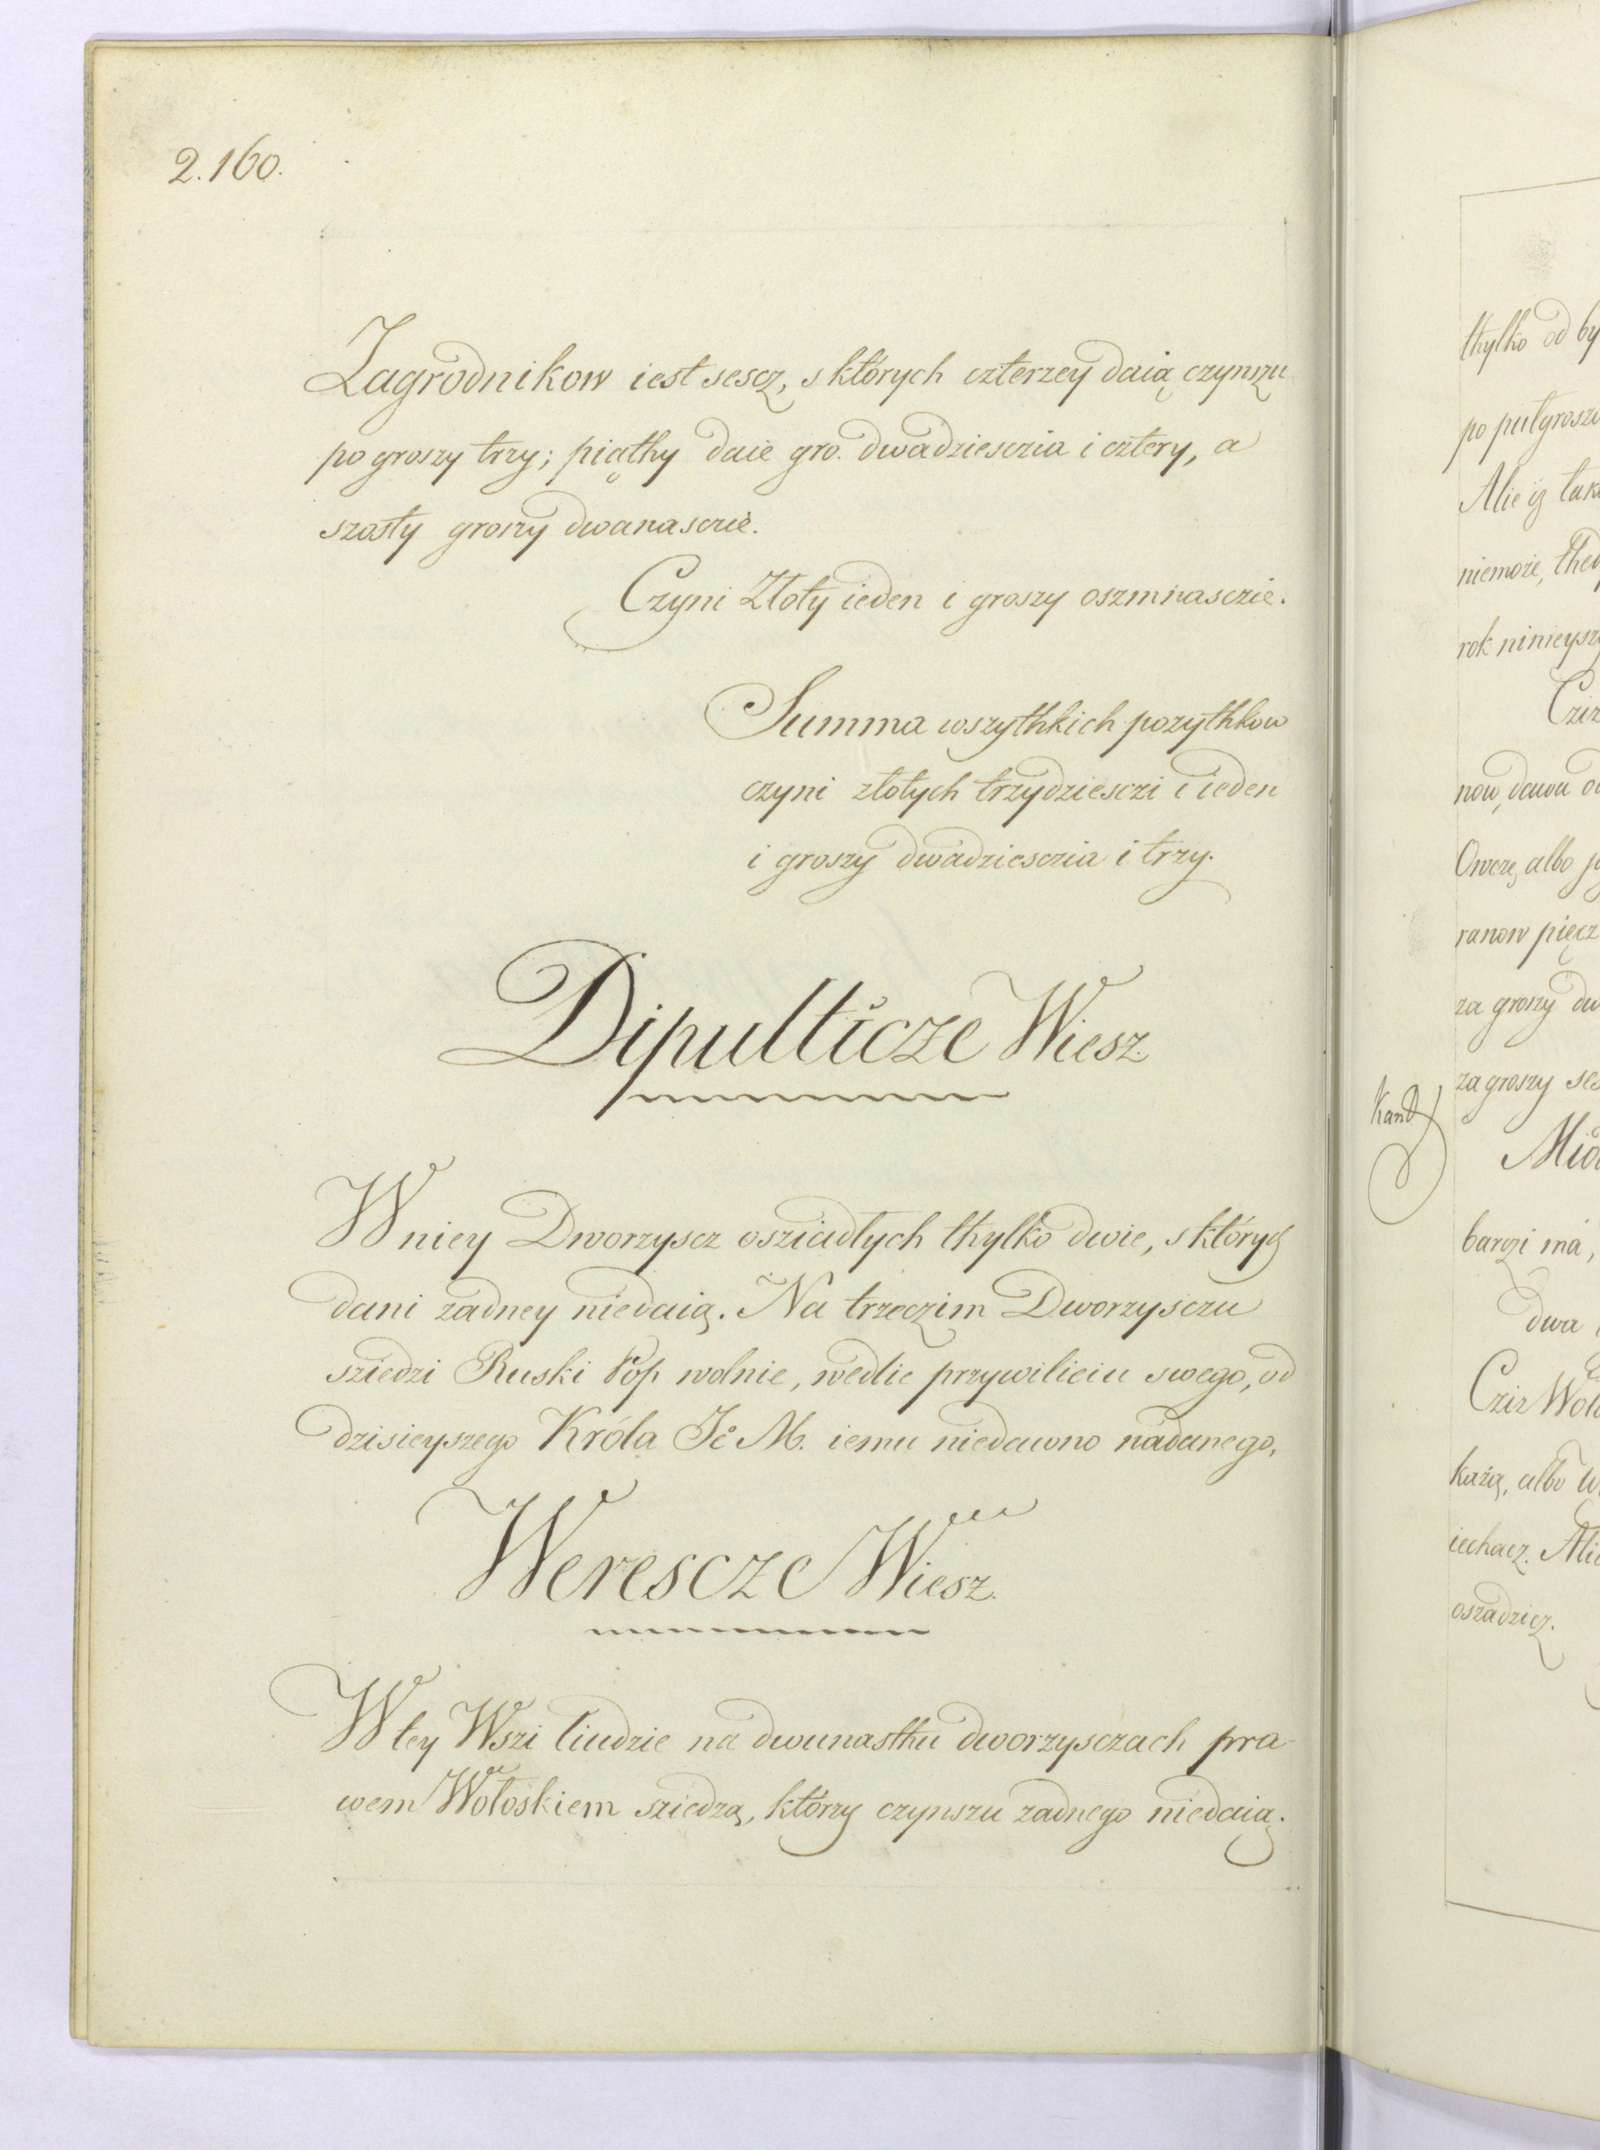 2.160.
Zagrodnikow iest sescz, s których czterzey daią czynszu
po groszy trzy; piąthy daie gro. dwadziesczia i cztery, a
szosty groszy dwanasczie.
Czyni Złoty ieden i groszy oszmnasczie.
Summa wszythkich pozythkow
czyni złotych trzydziesczi i ieden
i groszy dwadziesczia i trzy.
Dipulticze Wiesz.
W niey Dworzyscz osziadłych thylko dwie, s których
dani zadney niedaią. Na trzeczim Dworzysczu
sziedzi Ruski Pop wolnie, wedlie przywilieiu swego, od
dzisieyszego Króla Je M. iemu niedawno nadanego,
Werescze Wiesz.
W tey Wszi liudzie na dwunasthu dworzysczach pra-
wem Wołoskiem sziedzą, którzy czynszu zadnego niedaią.
thylko od by
po pułgrosz
Alie iz tak
niemoze, thed
rok ninieysz
Czi
now, dawa od
Owcze, albo
ranow pięcz
za groszy dw
za groszy se
Kand
barzi ma,
dwa
Czir Woł
każą, albo w
iechacz. Alie
oszadzicz.